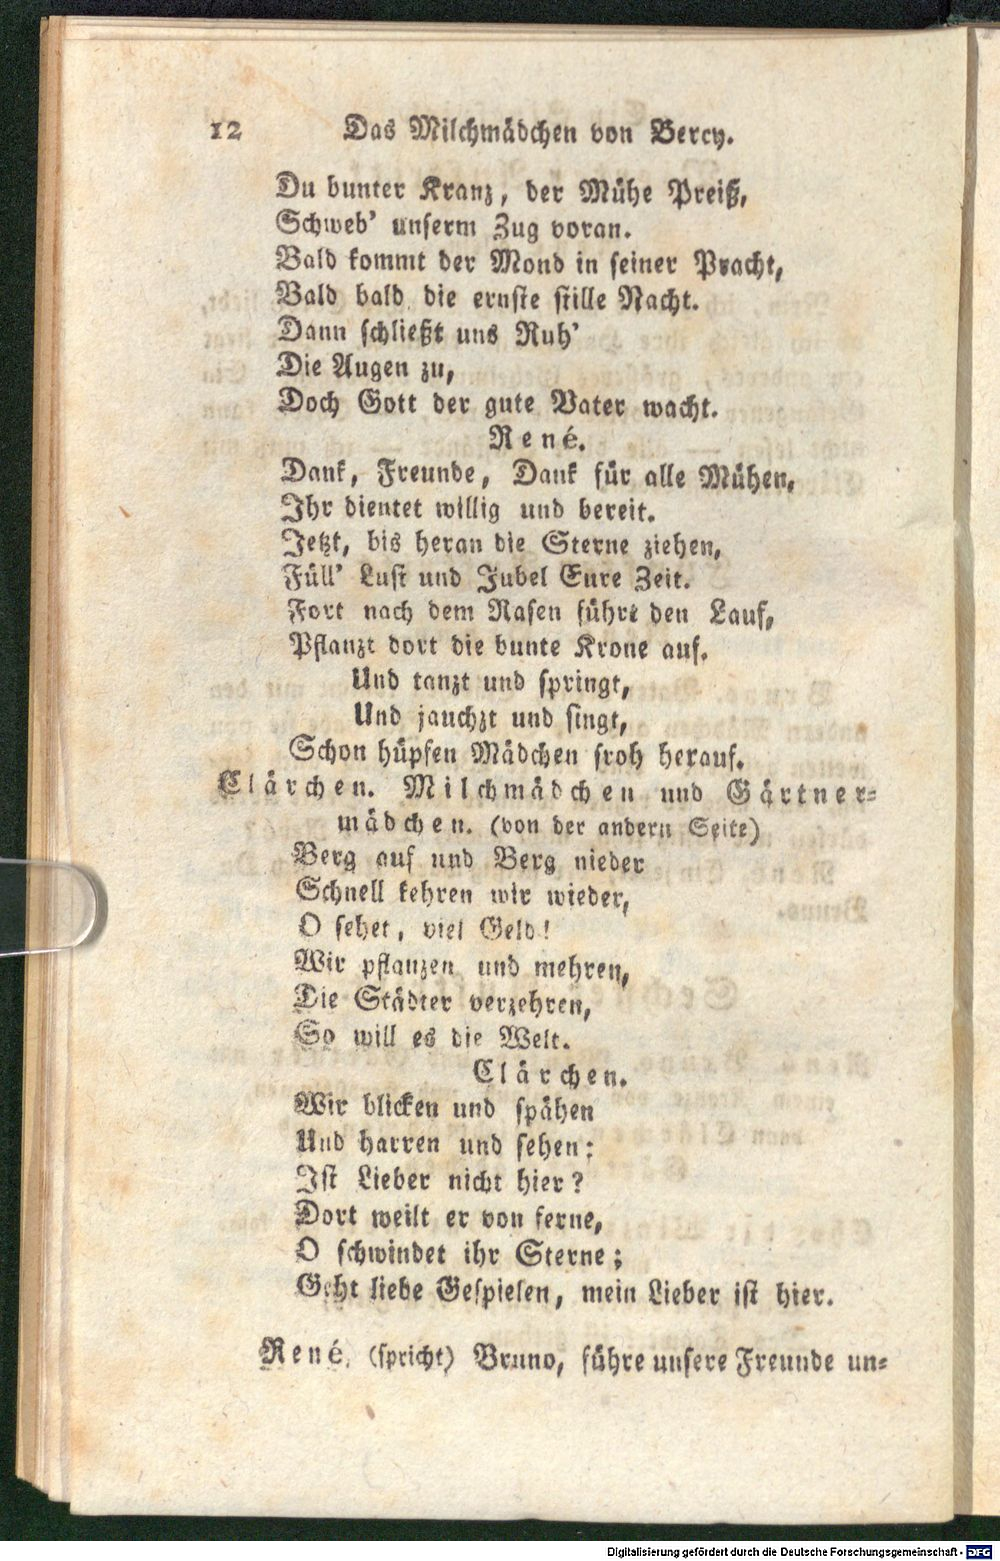 12 Das Milchmädchen von Bercy.
Du bunter Kranz, der Mühe Preiß,
Schweb' unserm Zug voran.
Bald kommt der Mond in seiner Pracht,
Bald bald die ernste stille Nacht.
Dann schließt uns Ruh'
Die Augen zu,
Doch Gott der gute Vater wacht.
René.
Dank, Freunde, Dank für alle Mühen,
Ihr dientet willig und bereit.
Jetzt, bis heran die Sterne ziehen,
Füll' Lust und Jubel Eure Zeit.
Fort nach dem Rasen führt den Lauf,
Pflanzt dort die bunte Krone auf.
Und tanzt und springt,
Und jauchzt und singt,
Schon hüpfen Mädchen froh herauf.
Clärchen. Milchmädchen und Gärtner-
mädchen. (von der andern Seite)
Berg auf und Berg nieder
Schnell kehren wir wieder,
O sehet, viel Geld!
Wir pflanzen und mehren,
Die Städter verzehren,
So will es die Welt.
Clärchen.
Wir blicken und spähen
Und harren und sehen:
Ist Lieber nicht hier?
Dort weilt er von ferne,
O schwindet ihr Sterne;
Geht liebe Gespielen, mein Lieber ist hier.
René. (spricht) Bruno, führe unsere Freunde un-
Digitalisierung gefördert durch die Deutsche Forschungsgemeinschaft - DFG